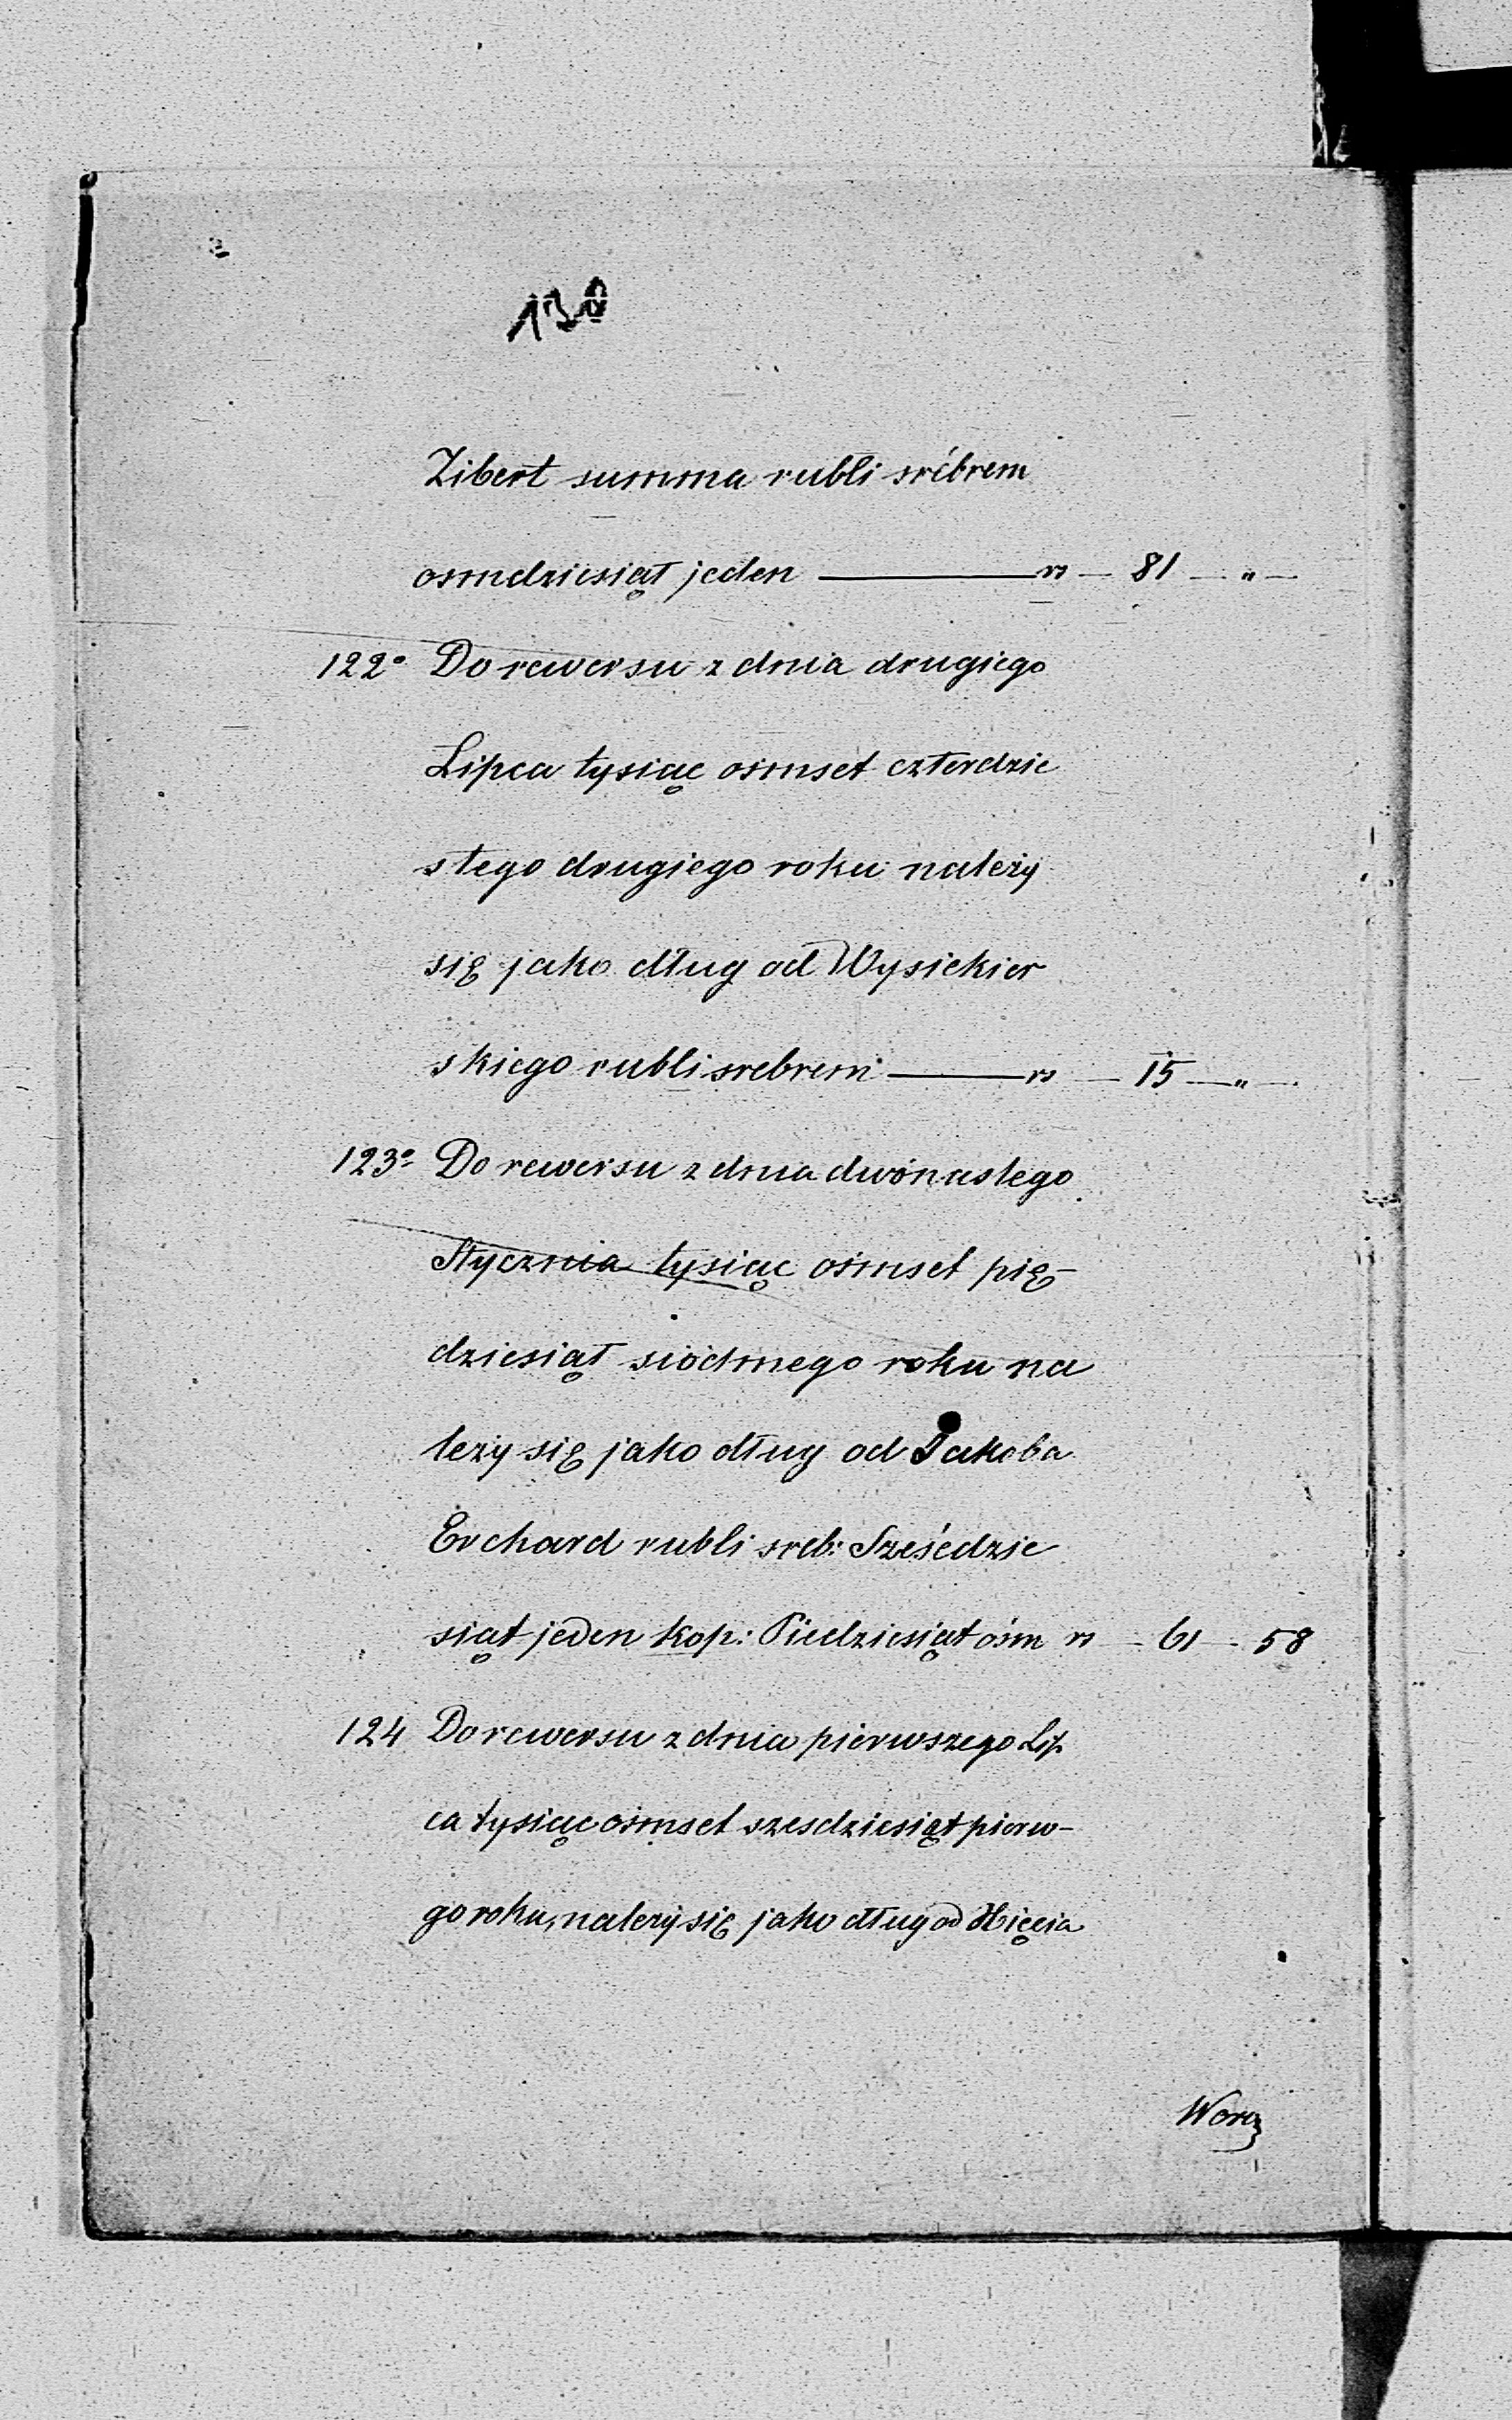 130
Zibert summa rubli srébrem
osmdziesiąt jeden ——— rs — 81 — „ —
122° Do rewersu z dnia drugiego
Lipca tysiąc ośmset czterdzie
stego drugiego roku należy
się jako dług od Wysiekier
skiego rubli srebrem ——— rs — 15 — „ —
123° Do rewersu z dnia dwónastego
Stycznia tysiąc ośmset pię-
dziesiąt siódmego roku na
leży się jako dług od Jakoba
Erchard rubli sreb: Sześćdzie
siąt jeden kop: Piedziesiąt ośm rs — 61 — 58
124 Do rewersu z dnia pierwszego Lip
ca tysiąc ośmset szesdziesiąt pierw-
go roku, należy się jako dług od Xięcia